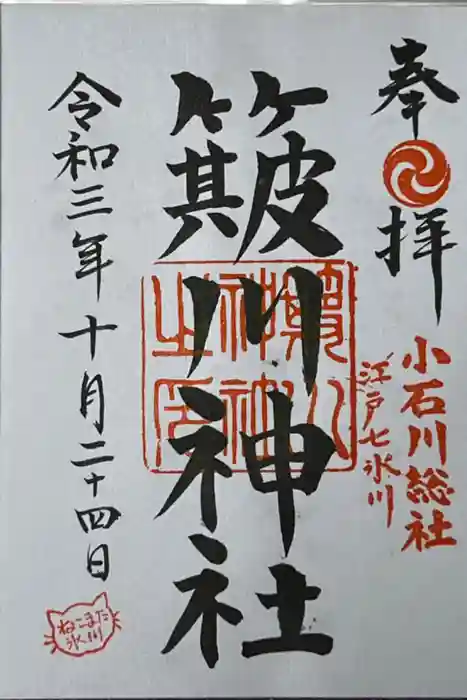 奉拝
小石川総社
江戸七氷川
簸川神社
簸川神社之印
令和三年十月二十四日
ねこまた
氷川